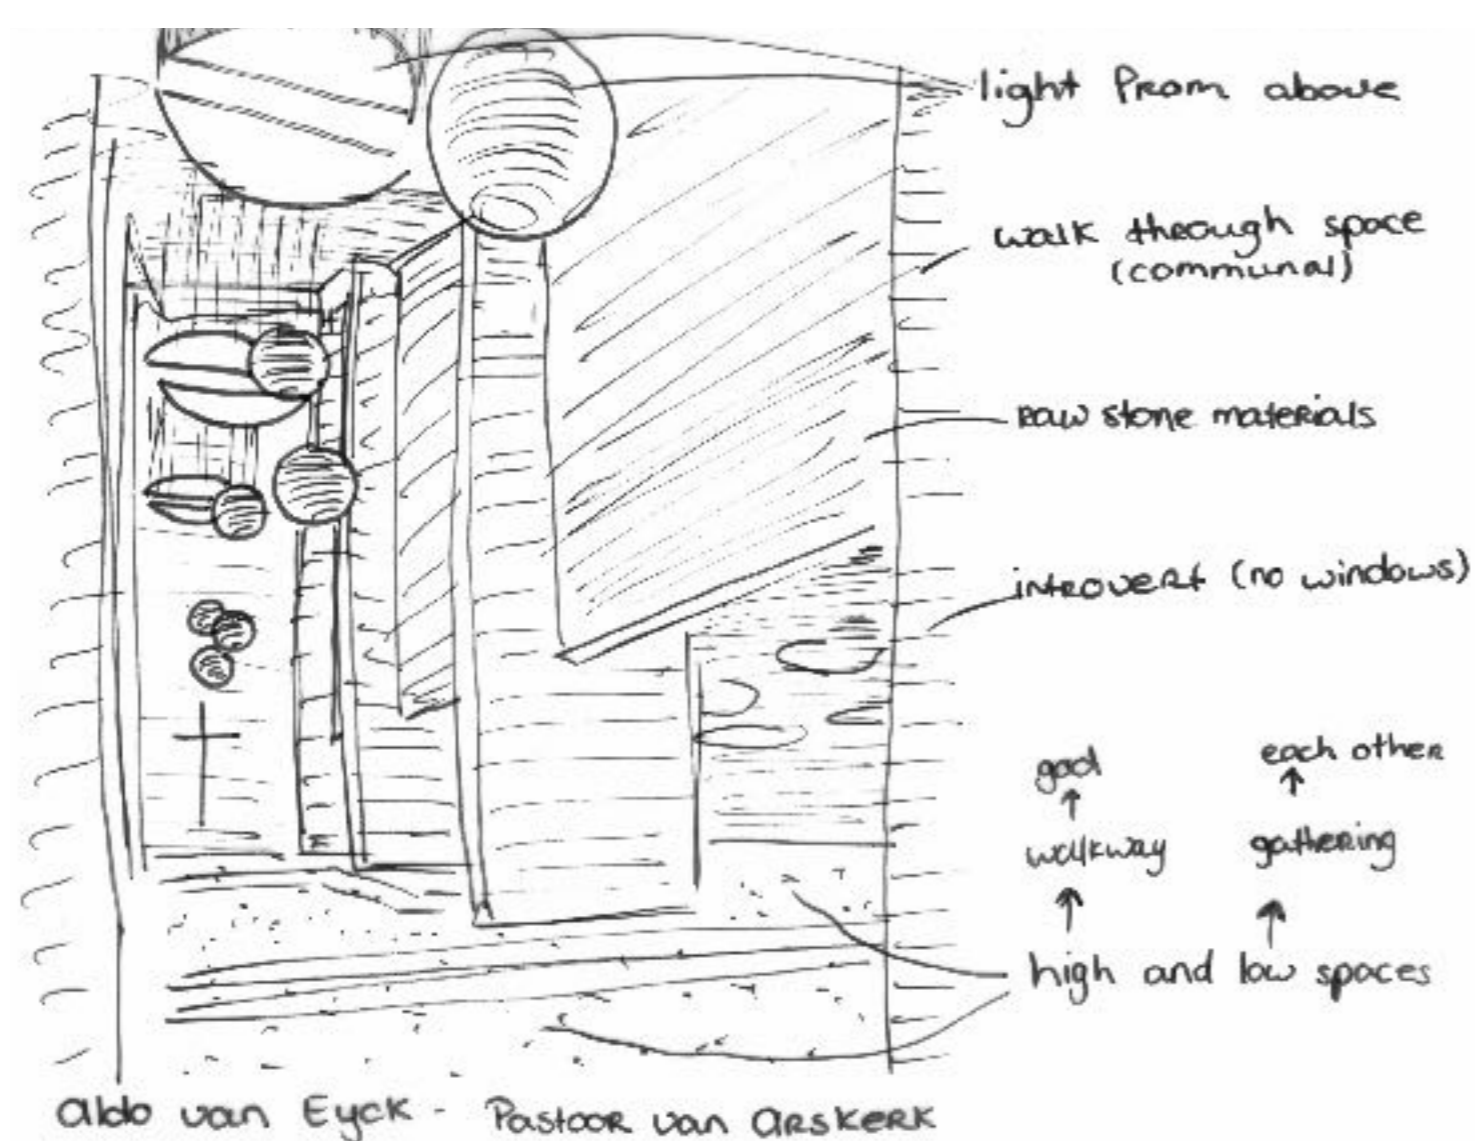 light from above
walk through space
(communal)
raw stone materials
introvert (no windows)
god
each other
walkway
gathering
high and low spaces
aldo van Eyck - Pastoor van arskerk